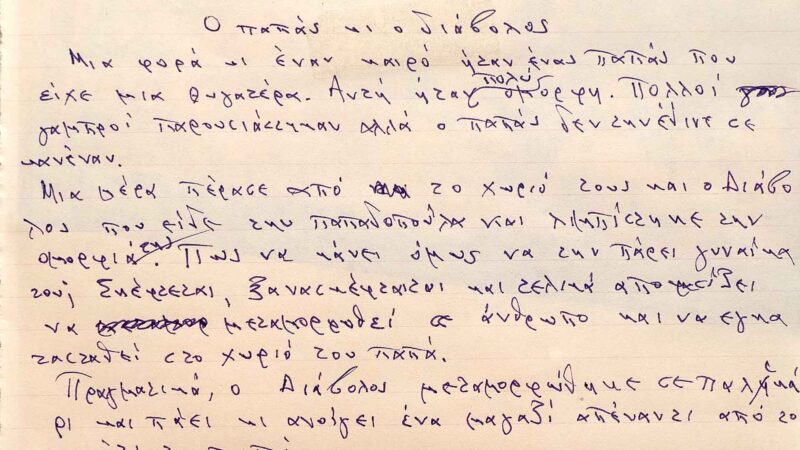 Ο παπάς κι ο διάβολος
Μια φορά κι έναν καιρό ήταν ένας παπάς που
είχε μια θυγατέρα. Αυτή ήταν πολύ όμορφη. Πολλοί
γαμπροί παρουσιάστηκαν αλλά ο παπάς δεν την έδινε σε
κανέναν.
Μια μέρα πέρασε από το χωριό τους και ο Διάβο
λος που είδε την παπαδοπούλα και λιμπίστηκε την
ομορφιά της. Πως να κάνει όμως να την πάρει γυναίκα
του; Σκέφτεται, ξανασκέφτεται και τελικά αποφασίζει
να μεταμορφωθεί σε άνθρωπο και να εγκα
τασταθεί στο χωριό του παπά.
Πραγματικά, ο Διάβολος μεταμορφώθηκε σε παλληκά
ρι και πάει κι ανοίγει ένα μαγαζί απέναντι από το